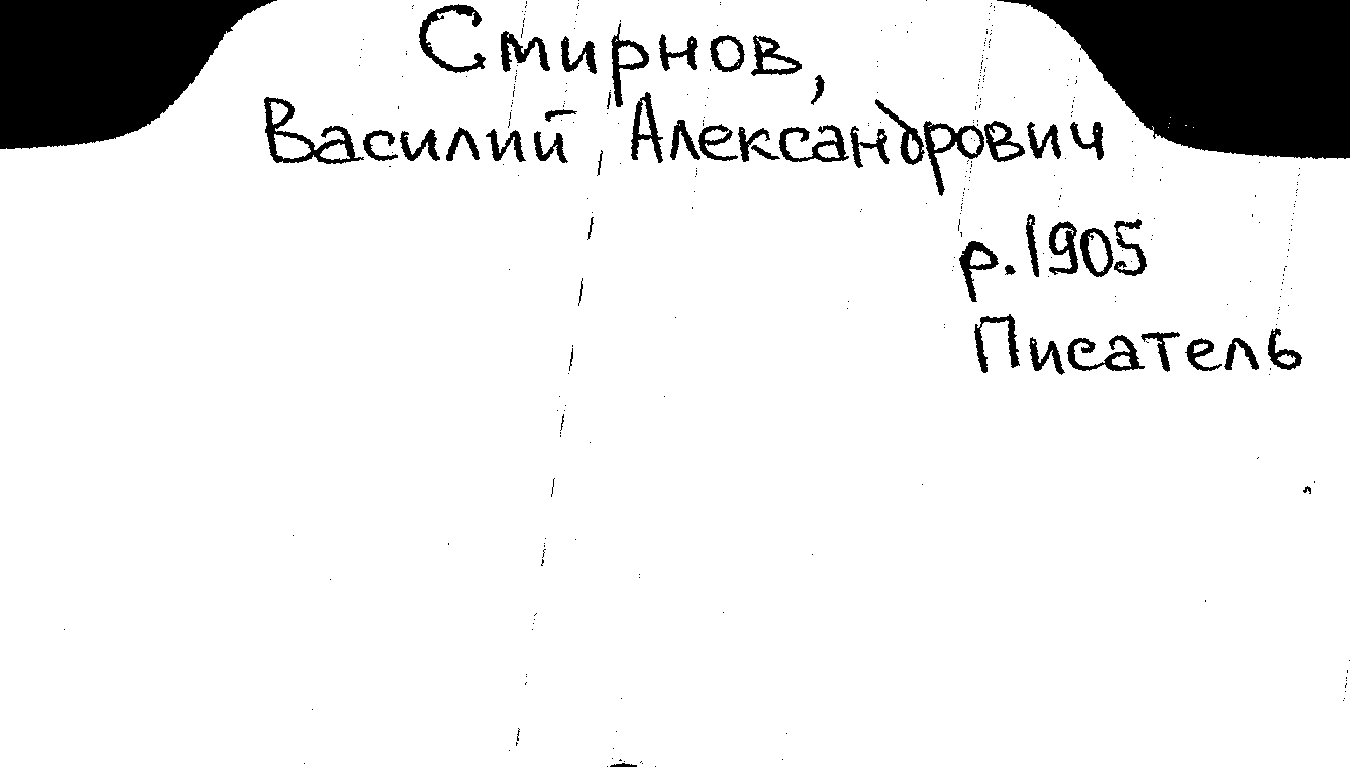 Смирнов,
Василий Александрович
р. 1905
Писатель